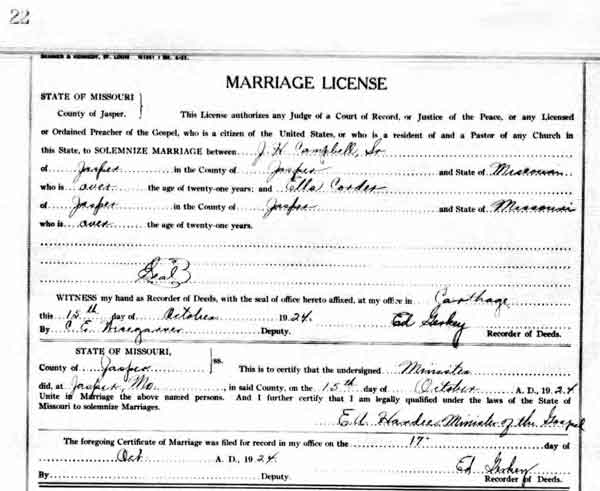 22
MARRIAGE LICENSE
STATE OF MISSOURI
County of Jasper. This License authorizes any Judge of a Court of Record, or Justice of the Peace, or any Licensed
or Ordained Preacher of the Gospel, who is a citizen of the United States, or who is a resident of and a Pastor of any Church in
this State, to SOLEMNIZE MARRIAGE between J. H. Campbell, Sr
of Jasper in the County of Jasper and State of Missouri
who is over the age of twenty-one years; and Ella Corder
of Jasper in the County of Jasper and State of Missouri
who is over the age of twenty-one years.
Seal
WITNESS my hand as Recorder of Deeds, with the seal of office hereto affixed, at my office in Carthage
this 15th day of October 1924.
By C. E. Deputy. Ed Recorder of Deeds.
STATE OF MISSOURI,
County of Jasper ss. This is to certify that the undersigned Minister
did, at Jasper, Mo. in said County, on the 15th day of October A. D., 1924
Unite in Marriage the above named persons. And I further certify that I am legally qualified under the laws of the State of
Missouri to solemnize Marriages.
Minister of the Gospel
The foregoing Certificate of Marriage was filed for record in my office on the 17 day of
Oct A. D., 1924.
By Deputy. Ed Recorder of Deeds.